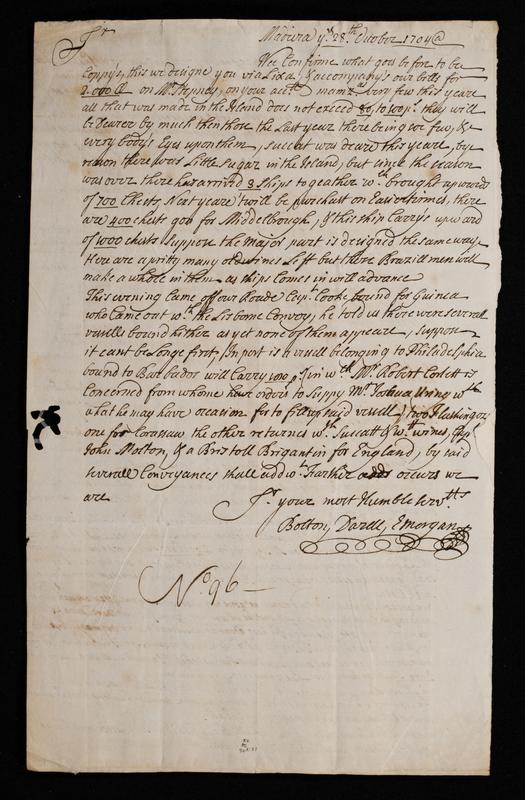 Madeira y.e 28.th October 1704 @
S.r
Wee Confirme what you be fore to be
Coppys, this we designe you via Lixa, & accompanys our bills for
2.000 on M.r Heysheys, on your acct.o mam very few this yeare
all that was made in the Island does not exceed 80 to 100 p.s they will
be dearer by much then those the Last yeare there being soe few, &
every bodys Eyes upon them, succat was deare this yeare, by
reason there was Little sugar in the Island, but since the season
was over there has arrived 3 ships to geather w.ch brought upward
of 700 Chests, Next yeare twill be purchast on Easier times, there
are 400 chests gon for Middelbrough, & this ship Carrys upward
of 1000 chests suppose the Major part is designed the same way
Here are a pritty many old wines Left but these Brazill men will
make a whole in them as ships Comes in will advance
This evening Came off our Roade Cap.t Cooke, bound for Guinea
who Came out w.th the Lisbone Convoy, he told us there were severall
vessells bound hither as yet none of them appeare, suppose
it cant be Longe first, In port is a vessell belonging to Philadelphia
bound to Barbados will Carry 100 p.s in w.ch M.r Robert Corlett is
Concerned from whome have orders to supply M.r Joshua w.th
what he may have occasion for to fill up said vessell, two Flushingers
one for Corassaw the other returnes w.th Succatt & w.th wines, Cap.t
John Molton, & a Bristoll Brigantin for England, by said
severall Conveyances shall add w.t Farther occurs we
are
S.r your most Humble Serv.tts
Bolton, Darell, & Morgan
N.o 96